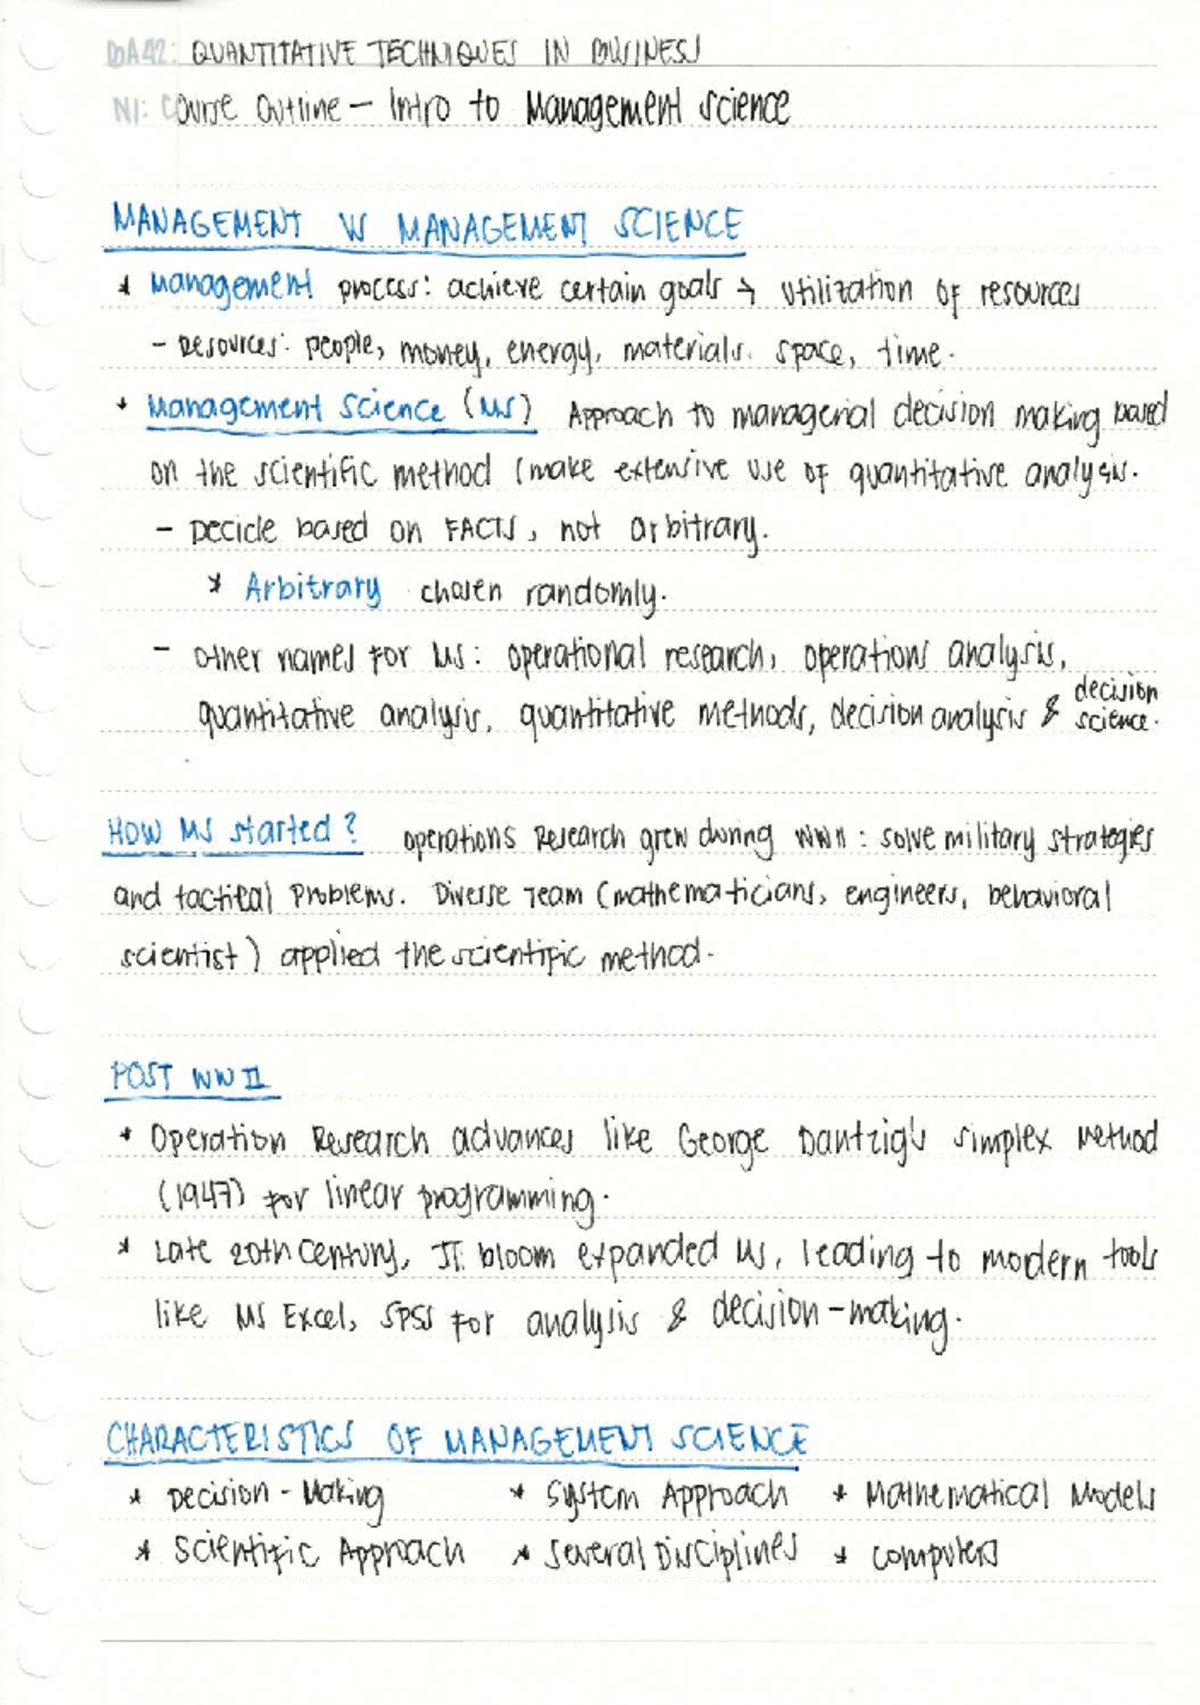 BA42: QUANTITATIVE TECHNIQUES IN BUSINESS
N1: Course Outline – Intro to Management Science
MANAGEMENT VS MANAGEMENT SCIENCE
* Management process: achieve certain goals → utilization of resources
- Resources: people, money, energy, materials. space, time.
* Management Science (MS) Approach to managerial decision making based
on the scientific method (make extensive use of quantitative analysis.
- Decide based on FACTS, not arbitrary.
* Arbitrary chosen randomly.
- other names for MS: operational research, operations analysis,
quantitative analysis, quantitative methods, decision analysis & decision science.
HOW MS started? Operations Research grew during WWII: solve military strategies
and tactical Problems. Diverse Team (mathematicians, engineers, behavioral
scientist) applied the scientific method.
POST WWII
* Operation Research advances like George Dantzig's Simplex Method
(1947) for linear programming.
* Late 20th Century, IT bloom expanded MS, leading to modern tools
like MS Excel, SPSS for analysis & decision-making.
CHARACTERISTICS OF MANAGEMENT SCIENCE
* Decision-Making * System Approach * Mathematical Models
* Scientific Approach * Several Disciplines * Computers